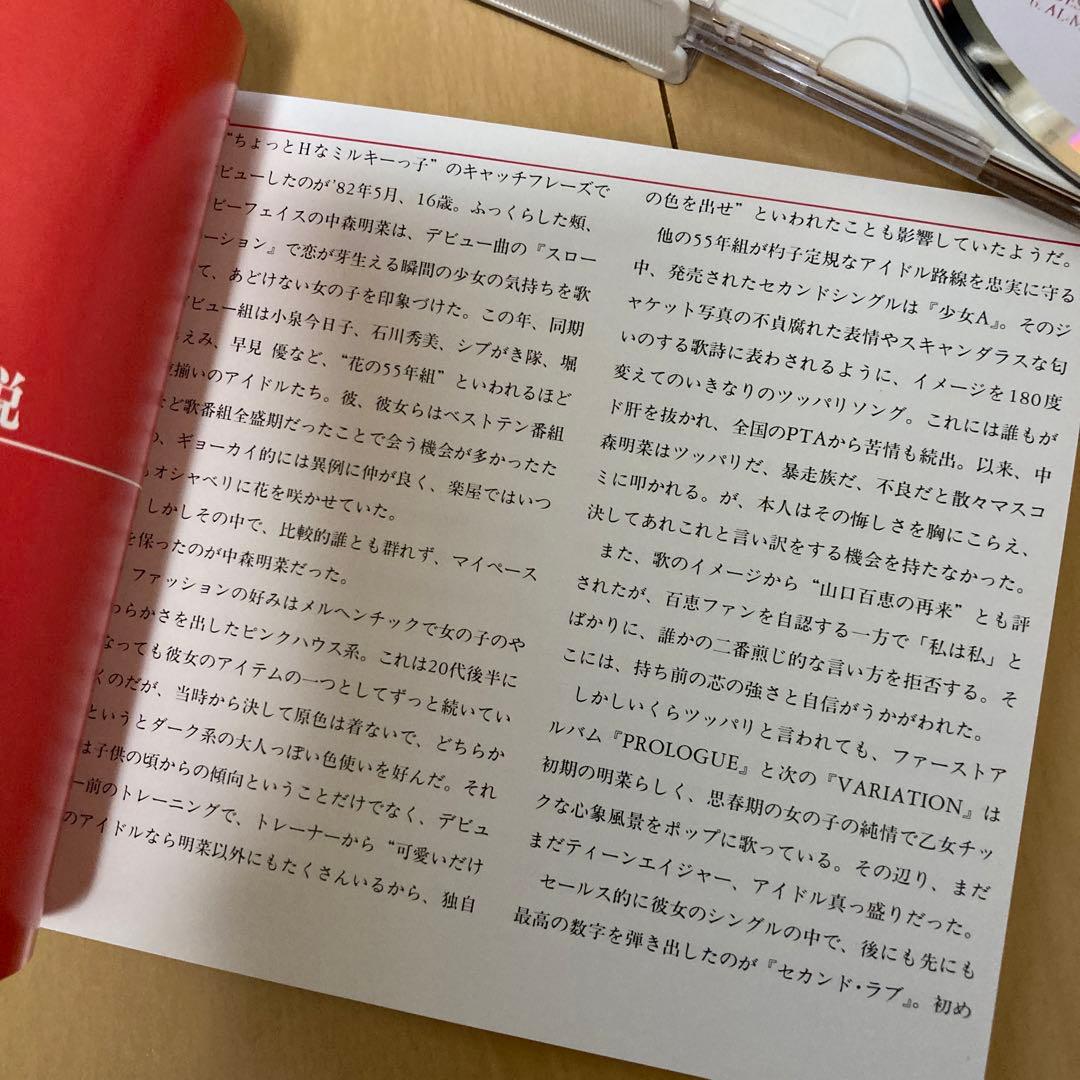 説
“ちょっとHなミルキーっ子”のキャッチフレーズで
ビューしたのが'82年5月、16歳。ふっくらした頬、
ビーフェイスの中森明菜は、デビュー曲の『スロー
ーション』で恋が芽生える瞬間の少女の気持ちを歌
て、あどけない女の子を印象づけた。この年、同期
デビュー組は小泉今日子、石川秀美、シブがき隊、堀
えみ、早見 優など、“花の55年組”といわれるほど
揃いのアイドルたち。彼、彼女らはベストテン番組
ど歌番組全盛期だったことで会う機会が多かったた
、ギョーカイ的には異例に仲が良く、楽屋ではいつ
もオシャベリに花を咲かせていた。
しかしその中で、比較的誰とも群れず、マイペース
を保ったのが中森明菜だった。
ファッションの好みはメルヘンチックで女の子のや
わらかさを出したピンクハウス系。これは20代後半に
なっても彼女のアイテムの一つとしてずっと続いてい
くのだが、当時から決して原色は着ないで、どちらか
というとダーク系の大人っぽい色使いを好んだ。それ
は子供の頃からの傾向ということだけでなく、デビュ
ー前のトレーニングで、トレーナーから“可愛いだけ
のアイドルなら明菜以外にもたくさんいるから、独自
の色を出せ”といわれたことも影響していたようだ。
他の55年組が杓子定規なアイドル路線を忠実に守る
中、発売されたセカンドシングルは『少女A』。そのジ
ャケット写真の不貞腐れた表情やスキャンダラスな匂
いのする歌詩に表わされるように、イメージを180度
変えてのいきなりのツッパリソング。これには誰もが
ド肝を抜かれ、全国のPTAから苦情も続出。以来、中
森明菜はツッパリだ、暴走族だ、不良だと散々マスコ
ミに叩かれる。が、本人はその悔しさを胸にこらえ、
決してあれこれと言い訳をする機会を持たなかった。
また、歌のイメージから“山口百恵の再来”とも評
されたが、百恵ファンを自認する一方で「私は私」と
ばかりに、誰かの二番煎じ的な言い方を拒否する。そ
こには、持ち前の芯の強さと自信がうかがわれた。
しかしいくらツッパリと言われても、ファーストア
ルバム『PROLOGUE』と次の『VARIATION』は
初期の明菜らしく、思春期の女の子の純情で乙女チッ
クな心象風景をポップに歌っている。その辺り、まだ
まだティーンエイジャー、アイドル真っ盛りだった。
セールス的に彼女のシングルの中で、後にも先にも
最高の数字を弾き出したのが『セカンド・ラブ』。初め